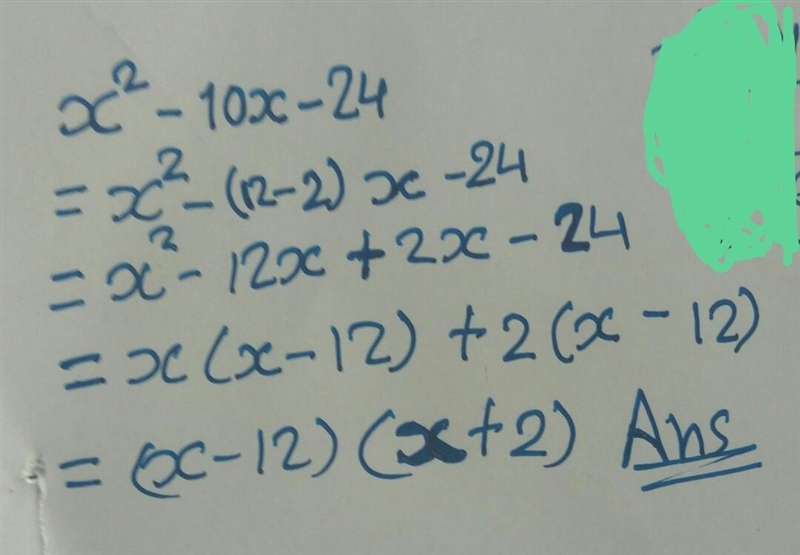 x² - 10x - 24
= x² - (12-2) x - 24
= x² - 12x + 2x - 24
= x (x - 12) + 2 (x - 12)
= (x - 12) (x + 2) Ans